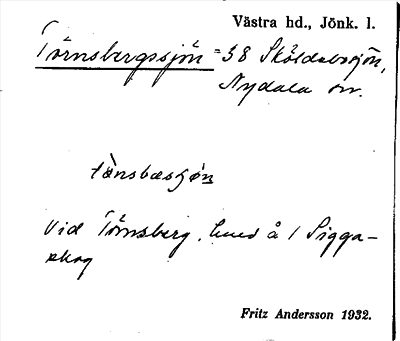 Västra hd., Jönk. l.
Törnsbergssjön = 58 Sköldabosjön,
Nydala sn.
tǝ̀nsbæsjøn
Vid Törnsberg, lued å / Sigga-
skog
Fritz Andersson 1932.